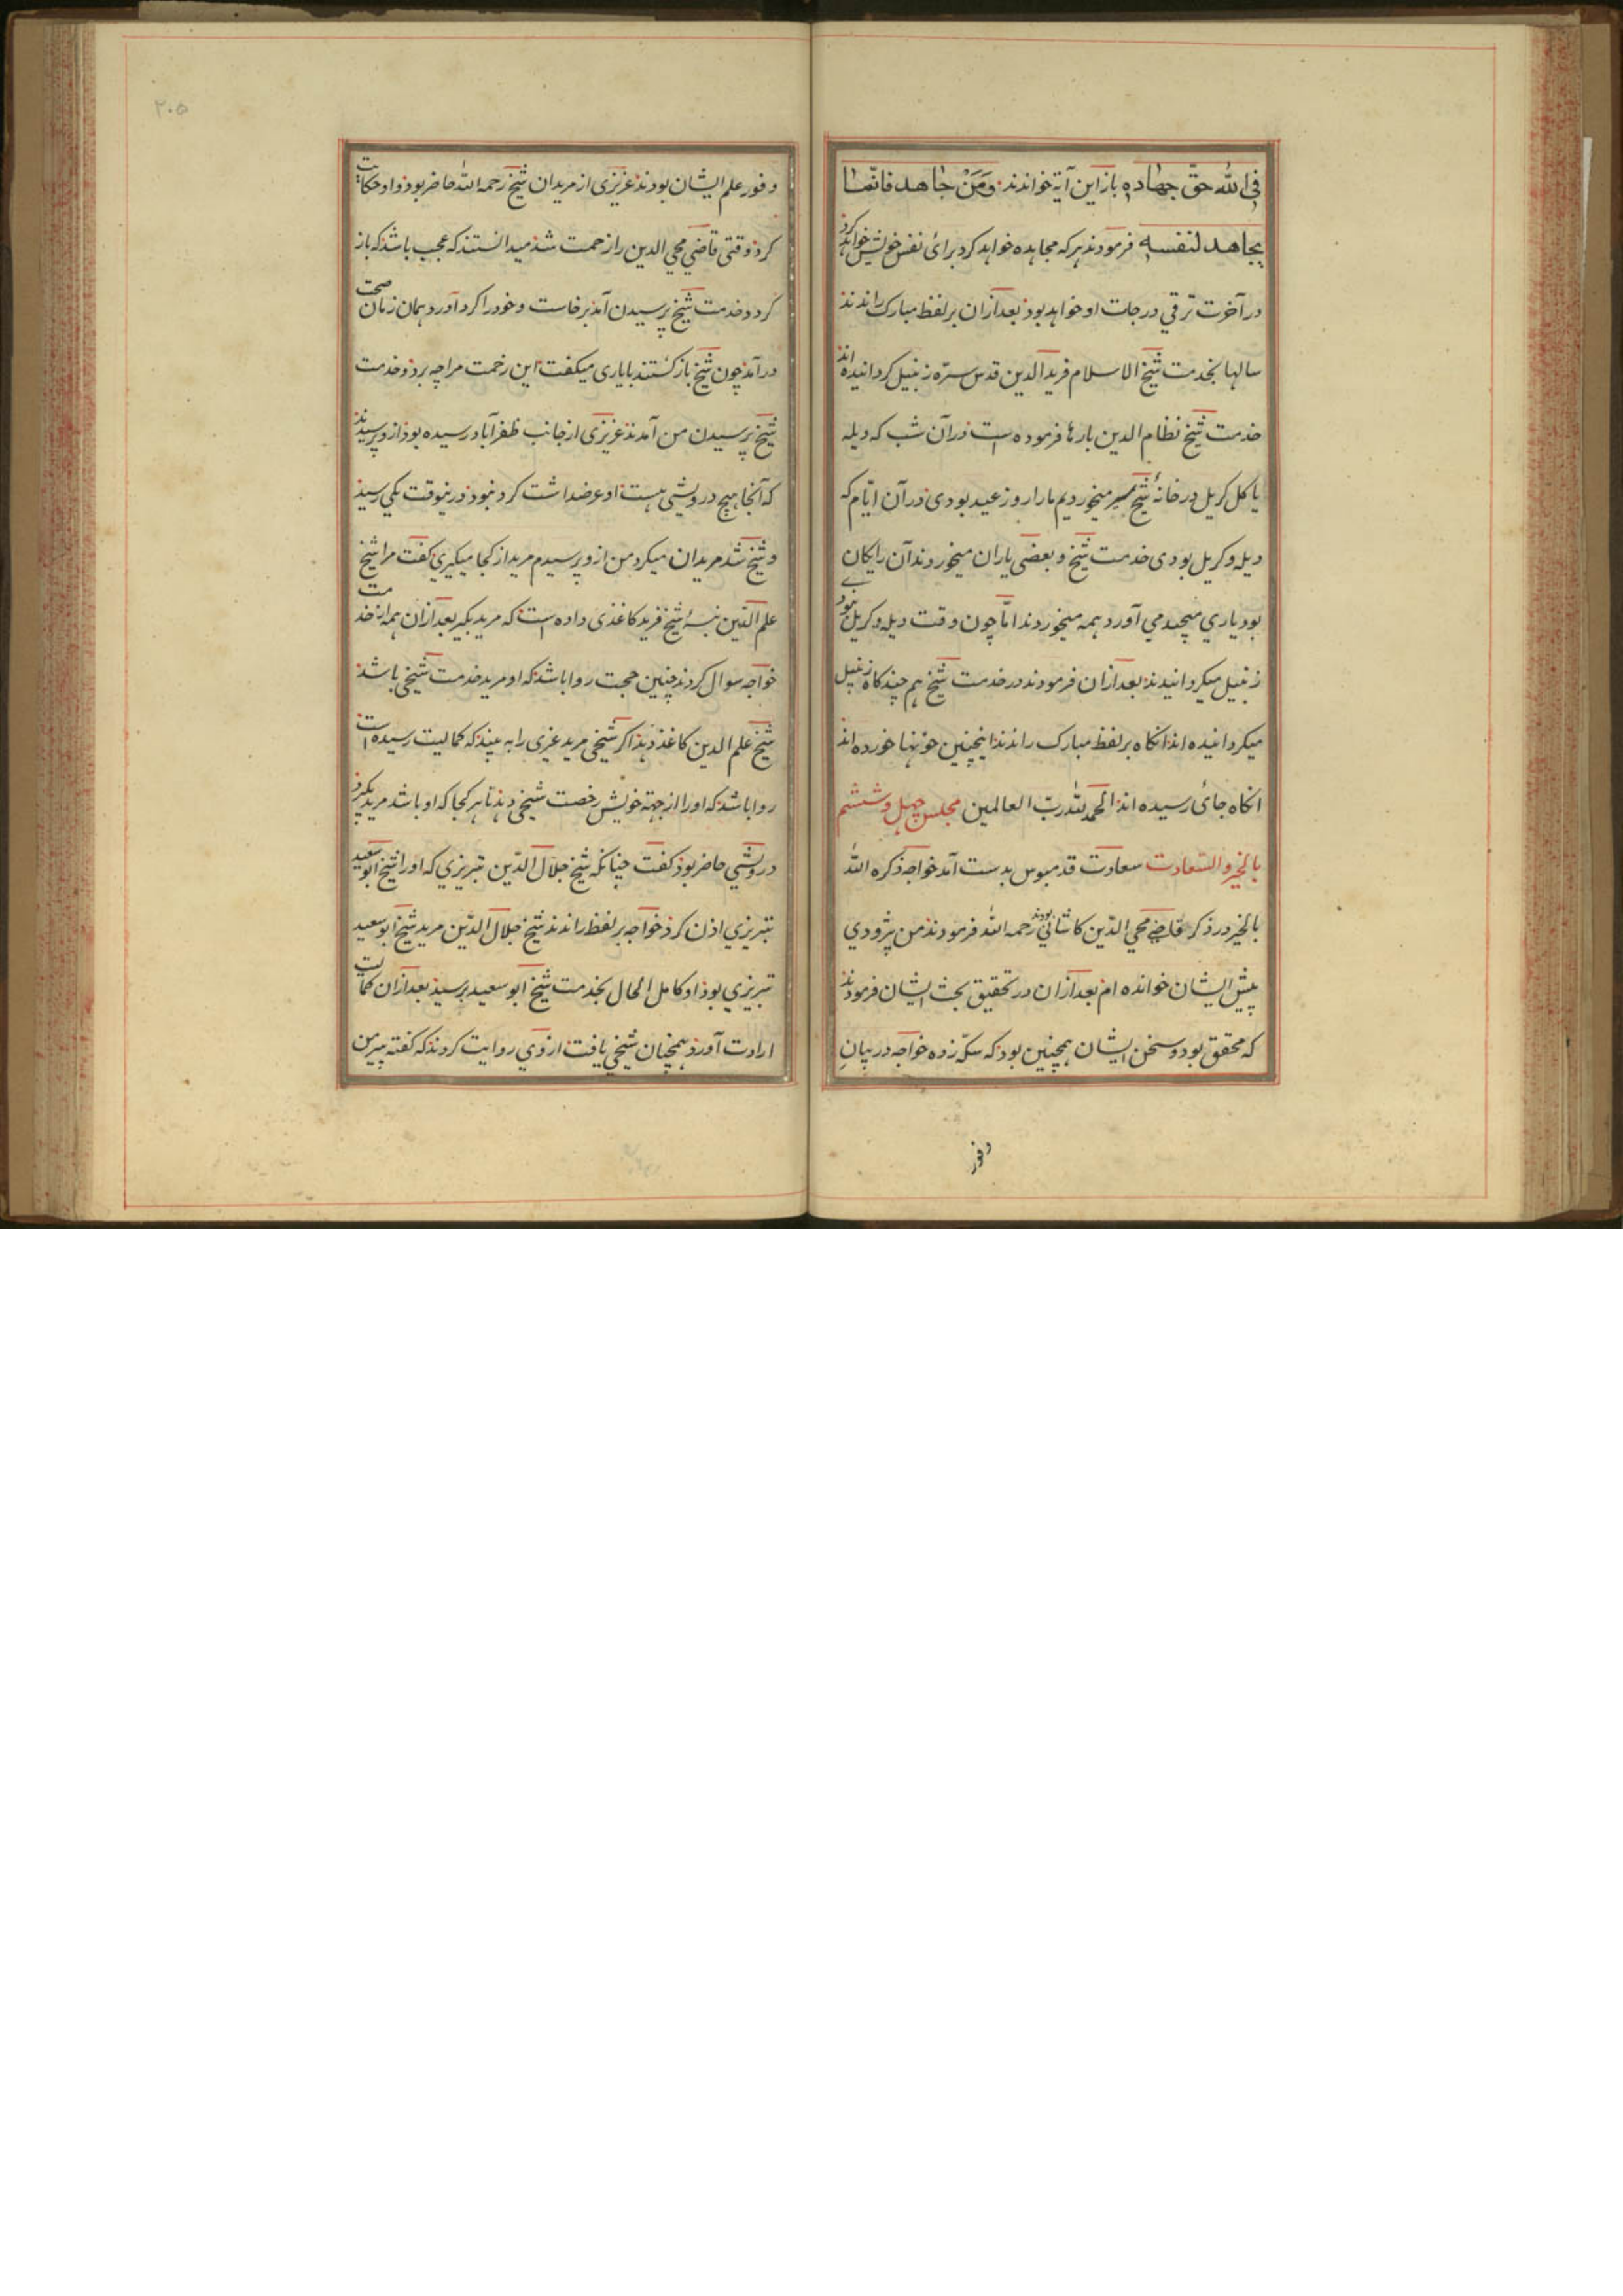 فی الله حقّ جهاده باز این آیة خواندند وَمَنْ جاهد فانّما
یجاهد لنفسه فرمودند هرکه مجاهده خواهد کرد برای نفس خویش خواهد کرد
در آخرت ترقی درجات او خواهد بود بعد ازان بر لفظ مبارک راندند
سالها بخدمت شیخ الاسلام فرید الدین قدس سرّه زنبیل کردانیده اند
خدمت شیخ نظام الدین بارها فرموده است در آن شب که دیله
یا کل کریل در خانهٔ شیخ سیر میخوردیم ما را روز عید بودی در آن ایّام که
دیله و کریل بودی خدمت شیخ و بعضی یاران میخوردند آن رایکان
بود یاری میچید می آورد همه میخوردند امّا چون وقت دیله و کریل نبودی
زنبیل میکردانیدند بعد ازان فرمودند در خدمت شیخ هم چند کاه زنبیل
میکردانیده اند انکاه بر لفظ مبارک راندند اینچنین خونها خورده اند
انکاه جائی رسیده اند الحمد لله ربّ العالمین مجلس چهل و ششم
بالخیر و السّعادت سعادت قدمبوس بدست آمد خواجه ذکره الله
بالخیر در ذکر قاضی محی الدّین کاشانی بودند رحمه الله فرمودند من پزودی
پیش ایشان خوانده ام بعد ازان در تحقیق بحث ایشان فرمودند
که محقق بود و سخن ایشان همچنین بود که سکّه زده خواجه در بیانِ
وفور
۲۰۵
وفور علم ایشان بودند عزیزی از مریدان شیخ رحمه الله حاضر بود و او حکایت
کرد وقتی قاضی محی الدین را زحمت شد میدانستند که عجب باشد که باز
کردد خدمت شیخ پرسیدن آمد برخاست و خود را کرد آورد همان زمان صحت
در آمد چون شیخ باز کشتند با یاری میکفت این زحمت مرا چه برد و خدمت
شیخ پرسیدن من آمدند عزیزی از جانب ظفرآباد رسیده بود از و پرسیدند
که آنجا هیچ درویشی هست او عرضداشت کرد نبود درینوقت یکی رسید
و شیخ شد مریدان میکرد من از و پرسیدم مرید از کجا میکیری کفت مرا شیخ
علم الدّین نبسهٔ شیخ فرید کاغذی داده است که مرید بکیر بعد ازان همه از خدمت
خواجه سوال کردند چنین حجت روا باشد که او مرید خدمت شیخی باشد
شیخ علم الدین کاغذ دهد اکر شیخی مرید غری را به بیند که کمالیت رسیده است
روا باشد که او را از جهة خویش رخصت شیخی دهد تا هر کجا که او باشد مرید بکیرد
درویشی حاضر بود کفت چنانکه شیخ جلال الدّین تبریزی که او را شیخ ابو سعید
تبریزی اذن کرد خواجه بر لفظ راندند شیخ جلال الدّین مرید شیخ ابو سعید
تبریزی بود او کامل الحال بخدمت شیخ ابو سعید برسید بعد ازان کمالیت
ارادت آورد همچنان شیخی یافت از وی روایت کردند که کفته پیر من